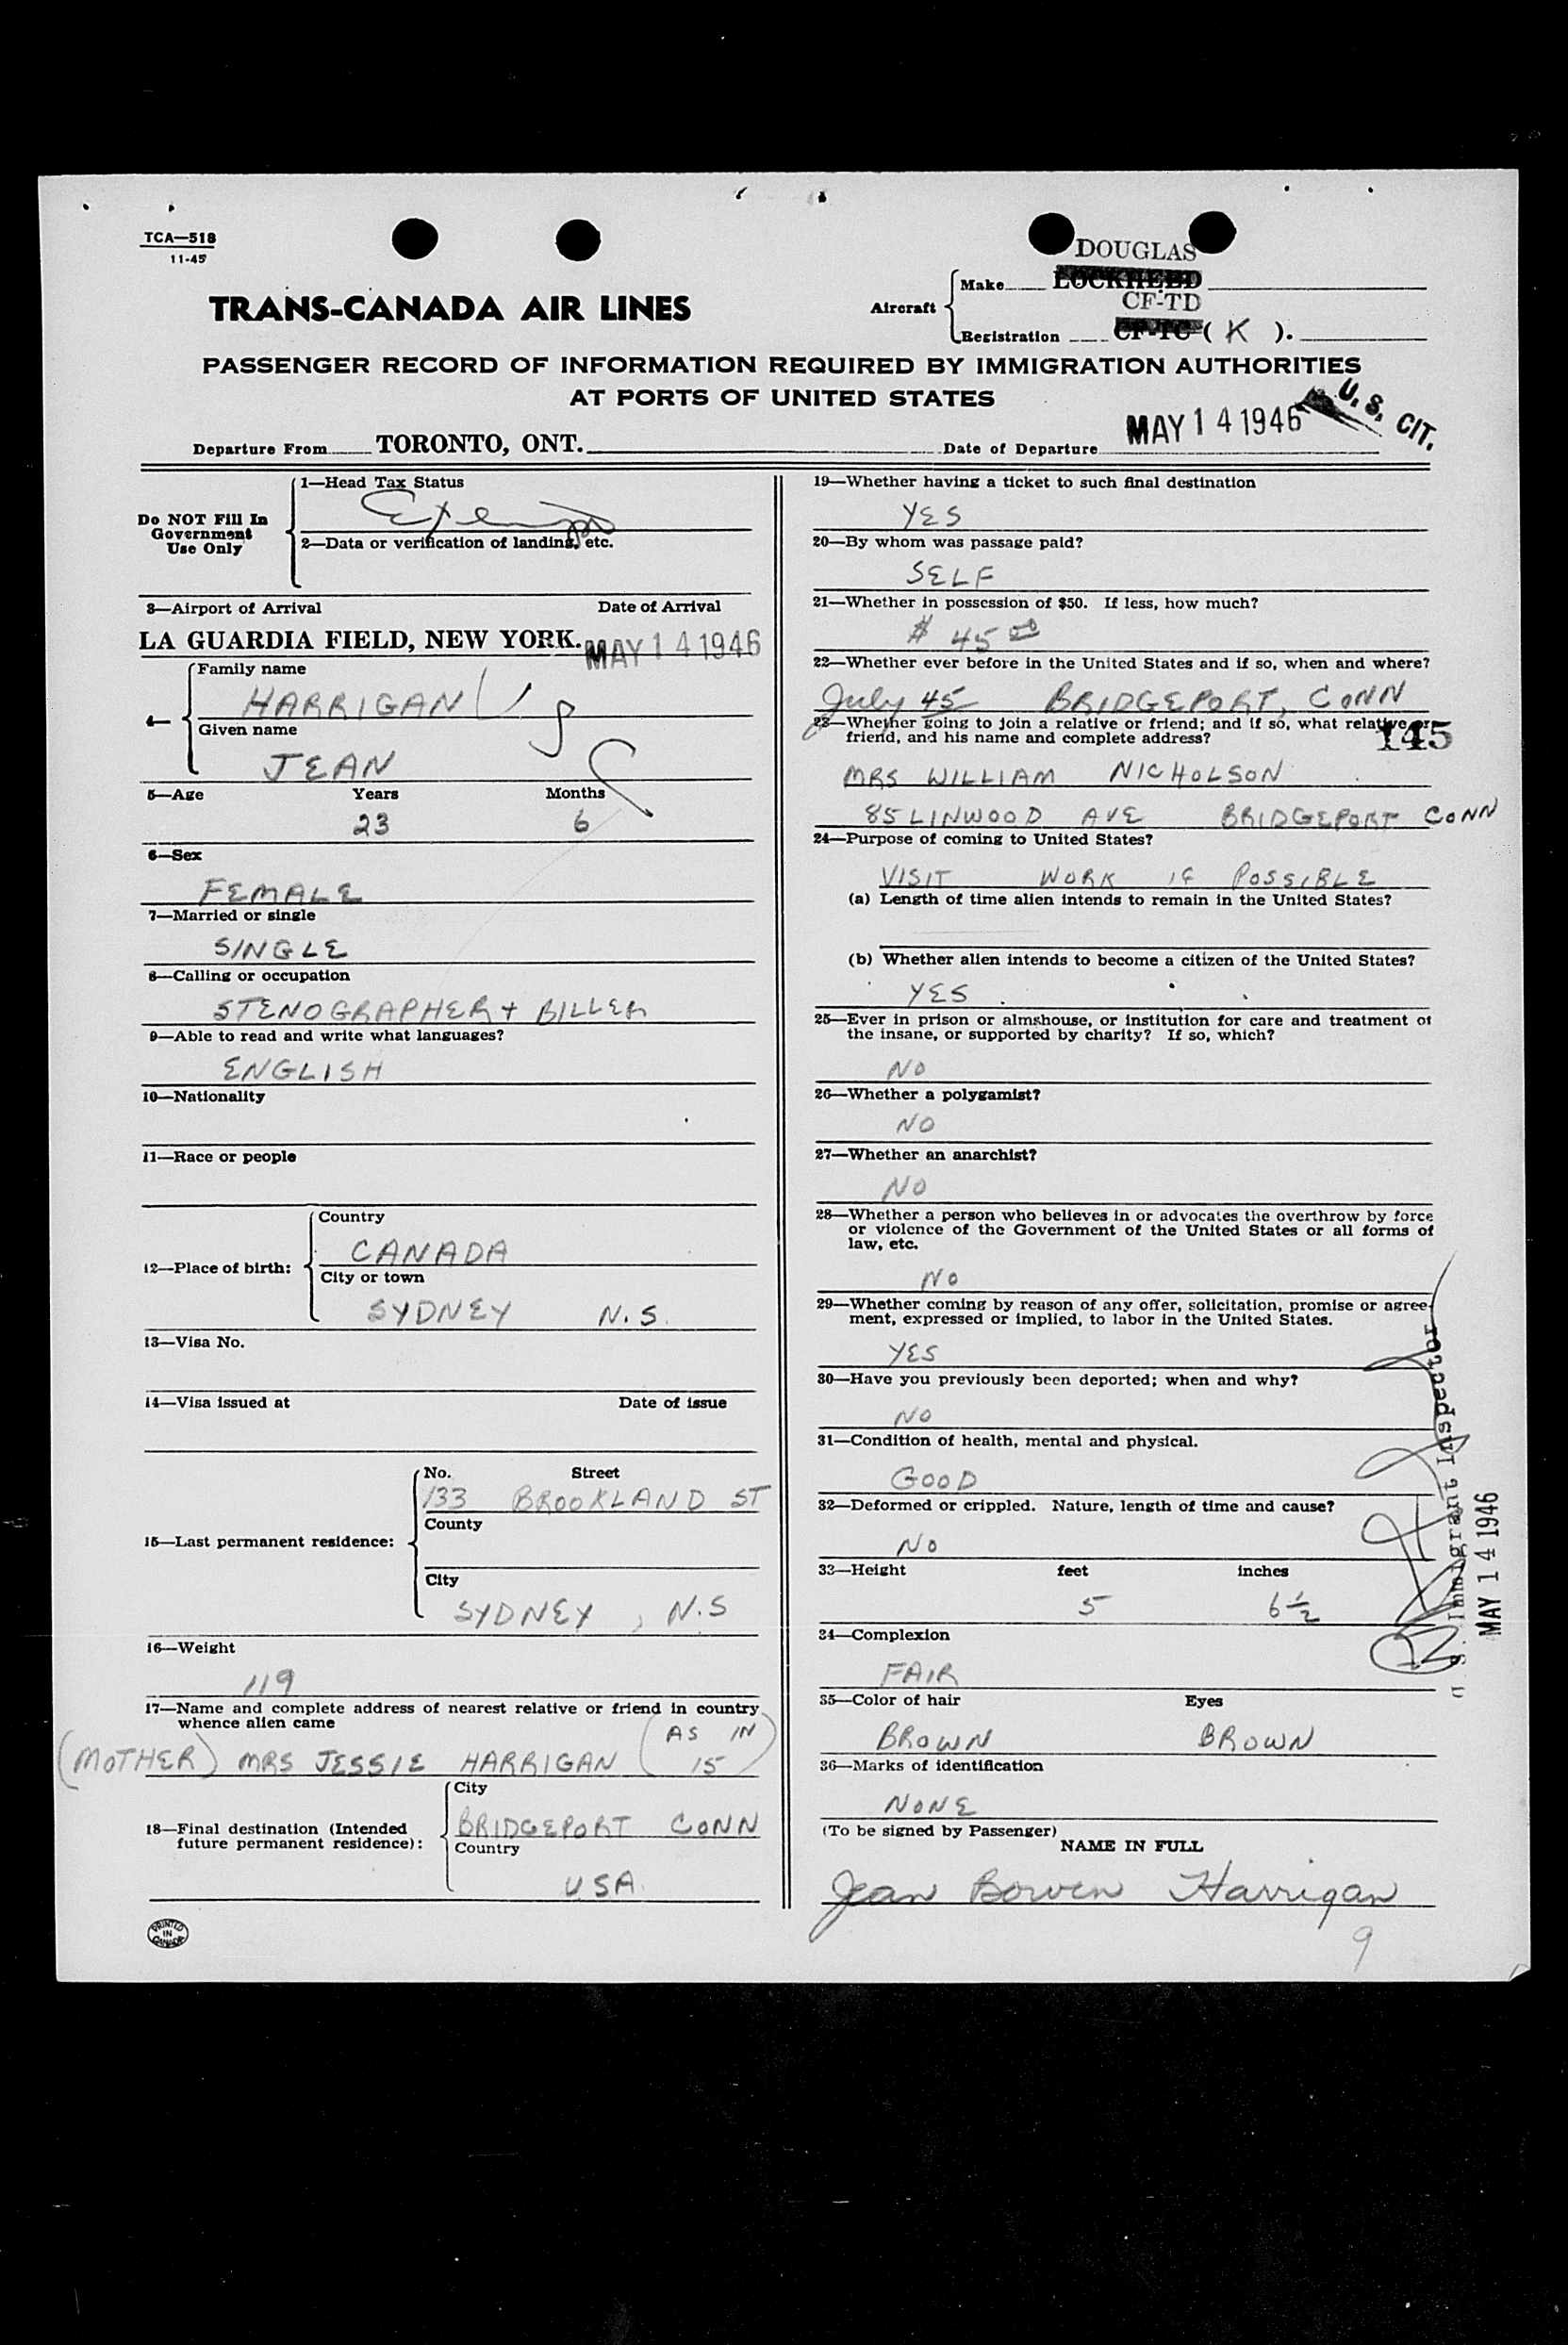 TCA—518
11-45
TRANS-CANADA AIR LINES
DOUGLAS
Aircraft
Make LOCKHEED
CF-TD
Registration CF-TC ( K ).
PASSENGER RECORD OF INFORMATION REQUIRED BY IMMIGRATION AUTHORITIES
AT PORTS OF UNITED STATES
U. S. CIT.
Departure From TORONTO, ONT. Date of Departure MAY 14 1946
Do NOT Fill In
Government
Use Only
1—Head Tax Status
Exempt
2—Data or verification of landing, etc.
3—Airport of Arrival Date of Arrival
LA GUARDIA FIELD, NEW YORK. MAY 14 1946
4—
Family name
HARRIGAN
Given name
JEAN
5—Age Years Months
23 6
6—Sex
FEMALE
7—Married or single
SINGLE
8—Calling or occupation
STENOGRAPHER + BILLER
9—Able to read and write what languages?
ENGLISH
10—Nationality
11—Race or people
12—Place of birth:
Country
CANADA
City or town
SYDNEY N.S.
13—Visa No.
14—Visa issued at Date of issue
15—Last permanent residence:
No. Street
133 BROOKLAND ST
County
City
SYDNEY, N.S
16—Weight
119
17—Name and complete address of nearest relative or friend in country
whence alien came
(MOTHER) MRS JESSIE HARRIGAN (AS IN 15)
18—Final destination (Intended
future permanent residence):
City
BRIDGEPORT CONN
Country
USA.
PRINTED
IN
CANADA
19—Whether having a ticket to such final destination
YES
20—By whom was passage paid?
SELF
21—Whether in possession of $50. If less, how much?
$ 45 00
22—Whether ever before in the United States and if so, when and where?
July 45 BRIDGEPORT, CONN
23—Whether going to join a relative or friend; and if so, what relative or
friend, and his name and complete address?
145
MRS WILLIAM NICHOLSON
85 LINWOOD AVE BRIDGEPORT CONN
24—Purpose of coming to United States?
VISIT WORK IF POSSIBLE
(a) Length of time alien intends to remain in the United States?
(b) Whether alien intends to become a citizen of the United States?
YES
25—Ever in prison or almshouse, or institution for care and treatment of
the insane, or supported by charity? If so, which?
NO
26—Whether a polygamist?
NO
27—Whether an anarchist?
NO
28—Whether a person who believes in or advocates the overthrow by force
or violence of the Government of the United States or all forms of
law, etc.
NO
29—Whether coming by reason of any offer, solicitation, promise or agree-
ment, expressed or implied, to labor in the United States.
YES
30—Have you previously been deported; when and why?
NO
31—Condition of health, mental and physical.
GOOD
32—Deformed or crippled. Nature, length of time and cause?
NO
33—Height feet inches
5 6½
34—Complexion
FAIR
35—Color of hair Eyes
BROWN BROWN
36—Marks of identification
NONE
(To be signed by Passenger)
NAME IN FULL
Jean Bowen Harrigan
9
U. S. Immigrant Inspector
MAY 14 1946